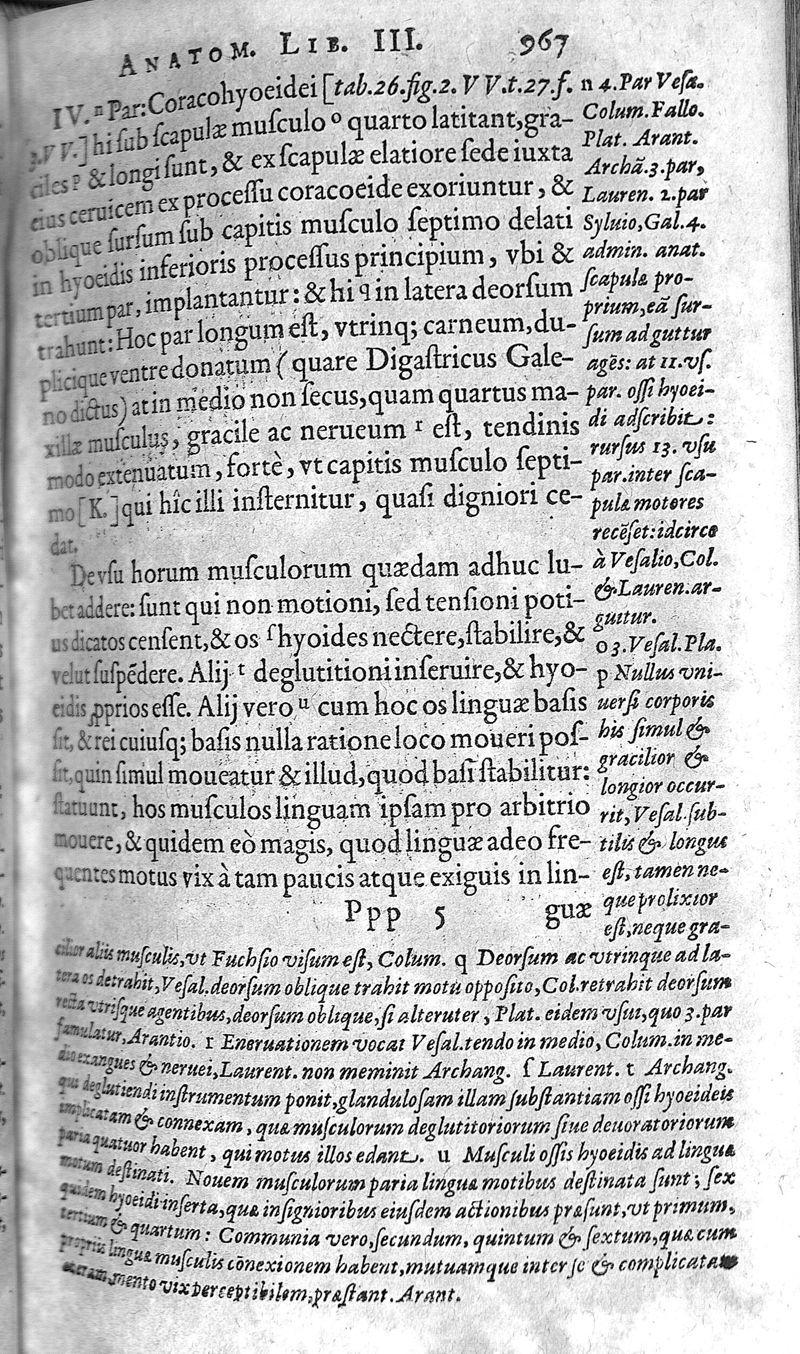 ANATOM. LIB. III. 967
IV.ⁿ Par: Coracohyoeidei [tab.26.fig.2. V V.t.27.f.
3.V V.] hi ſub ſcapulæ muſculo º quarto latitant, gra-
ciles ᵖ & longi ſunt, & ex ſcapulæ elatiore ſede iuxta
eius ceruicem ex proceſſu coracoeide exoriuntur, &
oblique ſurſum ſub capitis muſculo ſeptimo delati
in hyoeidis inferioris proceſſus principium, vbi &
tertium par, implantantur: & hi q in latera deorſum
trahunt: Hoc par longum eſt, vtrinq; carneum, du-
plicique ventre donatum (quare Digaſtricus Gale-
no dictus) at in medio non ſecus, quam quartus ma-
xillæ muſculus, gracile ac nerueum ʳ eſt, tendinis
modo extenuatum, fortè, vt capitis muſculo ſepti-
mo [K.] qui hîc illi inſternitur, quaſi digniori ce-
dat.
De vſu horum muſculorum quædam adhuc lu-
bet addere: ſunt qui non motioni, ſed tenſioni poti-
us dicatos cenſent, & os ſ hyoides nectere, ſtabilire, &
velut ſuſpēdere. Alij ᵗ deglutitioni inſeruire, & hyo-
eidis ꝓprios eſſe. Alij vero ᵘ cum hoc os linguæ baſis
ſit, & rei cuiuſq; baſis nulla ratione loco moueri poſ-
ſit, quin ſimul moueatur & illud, quod baſi ſtabilitur:
ſtatuunt, hos muſculos linguam ipſam pro arbitrio
mouere, & quidem eò magis, quod linguæ adeo fre-
quentes motus vix à tam paucis atque exiguis in lin-
Ppp 5 guæ
n 4. Par Veſa.
Colum. Fallo.
Plat. Arant.
Archā.3.par,
Lauren. 2.par
Syluio, Gal.4.
admin. anat.
ſcapulæ pro-
prium, eā ſur-
ſum ad guttur
agēs: at 11.vſ.
par. oſſi hyoei-
di adſcribit:
rurſus 13. vſu
par. inter ſca-
pulæ motores
recēſet: idcirco
à Veſalio, Col.
& Lauren. ar-
guitur.
o 3. Veſal. Pla.
p Nullus vni-
uerſi corporis
his ſimul &
gracilior &
longior occur-
rit, Veſal. ſub-
tilis & longus
eſt, tamen ne-
que prolixior
eſt, neque gra-
cilior aliis muſculis, vt Fuchſio viſum eſt, Colum. q Deorſum ac vtrinque ad la-
tera os detrahit, Veſal. deorſum oblique trahit motu oppoſito, Col. retrahit deorſum
recta vtriſque agentibus, deorſum oblique, ſi alteruter, Plat. eidem vſui, quo 3. par
famulatur, Arantio. r Eneruationem vocat Veſal. tendo in medio, Colum. in me-
dio exangues & neruei, Laurent. non meminit Archang. ſ Laurent. t Archang.
qui deglutiendi inſtrumentum ponit, glanduloſam illam ſubſtantiam oſſi hyoeideis
implicatam & connexam, quæ muſculorum deglutitoriorum ſiue deuoratoriorum
paria quatuor habent, qui motus illos edant. u Muſculi oſſis hyoeidis ad linguæ
motum deſtinati. Nouem muſculorum paria linguæ motibus deſtinata ſunt; ſex
quidem hyoeidi inſerta, quæ inſignioribus eiuſdem actionibus præſunt, vt primum,
tertium & quartum: Communia vero, ſecundum, quintum & ſextum, quæ cum
propriis linguæ muſculis cōnexionem habent, mutuamque inter ſe & complicatam
mento vix perceptibilem, præſtant. Arant.